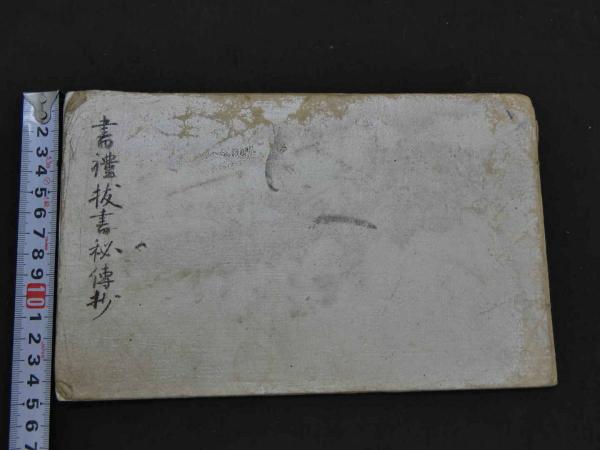 書禮拔書秘傳抄
2
3
4
5
6
7
8
9
10
1
2
3
4
5
6
7